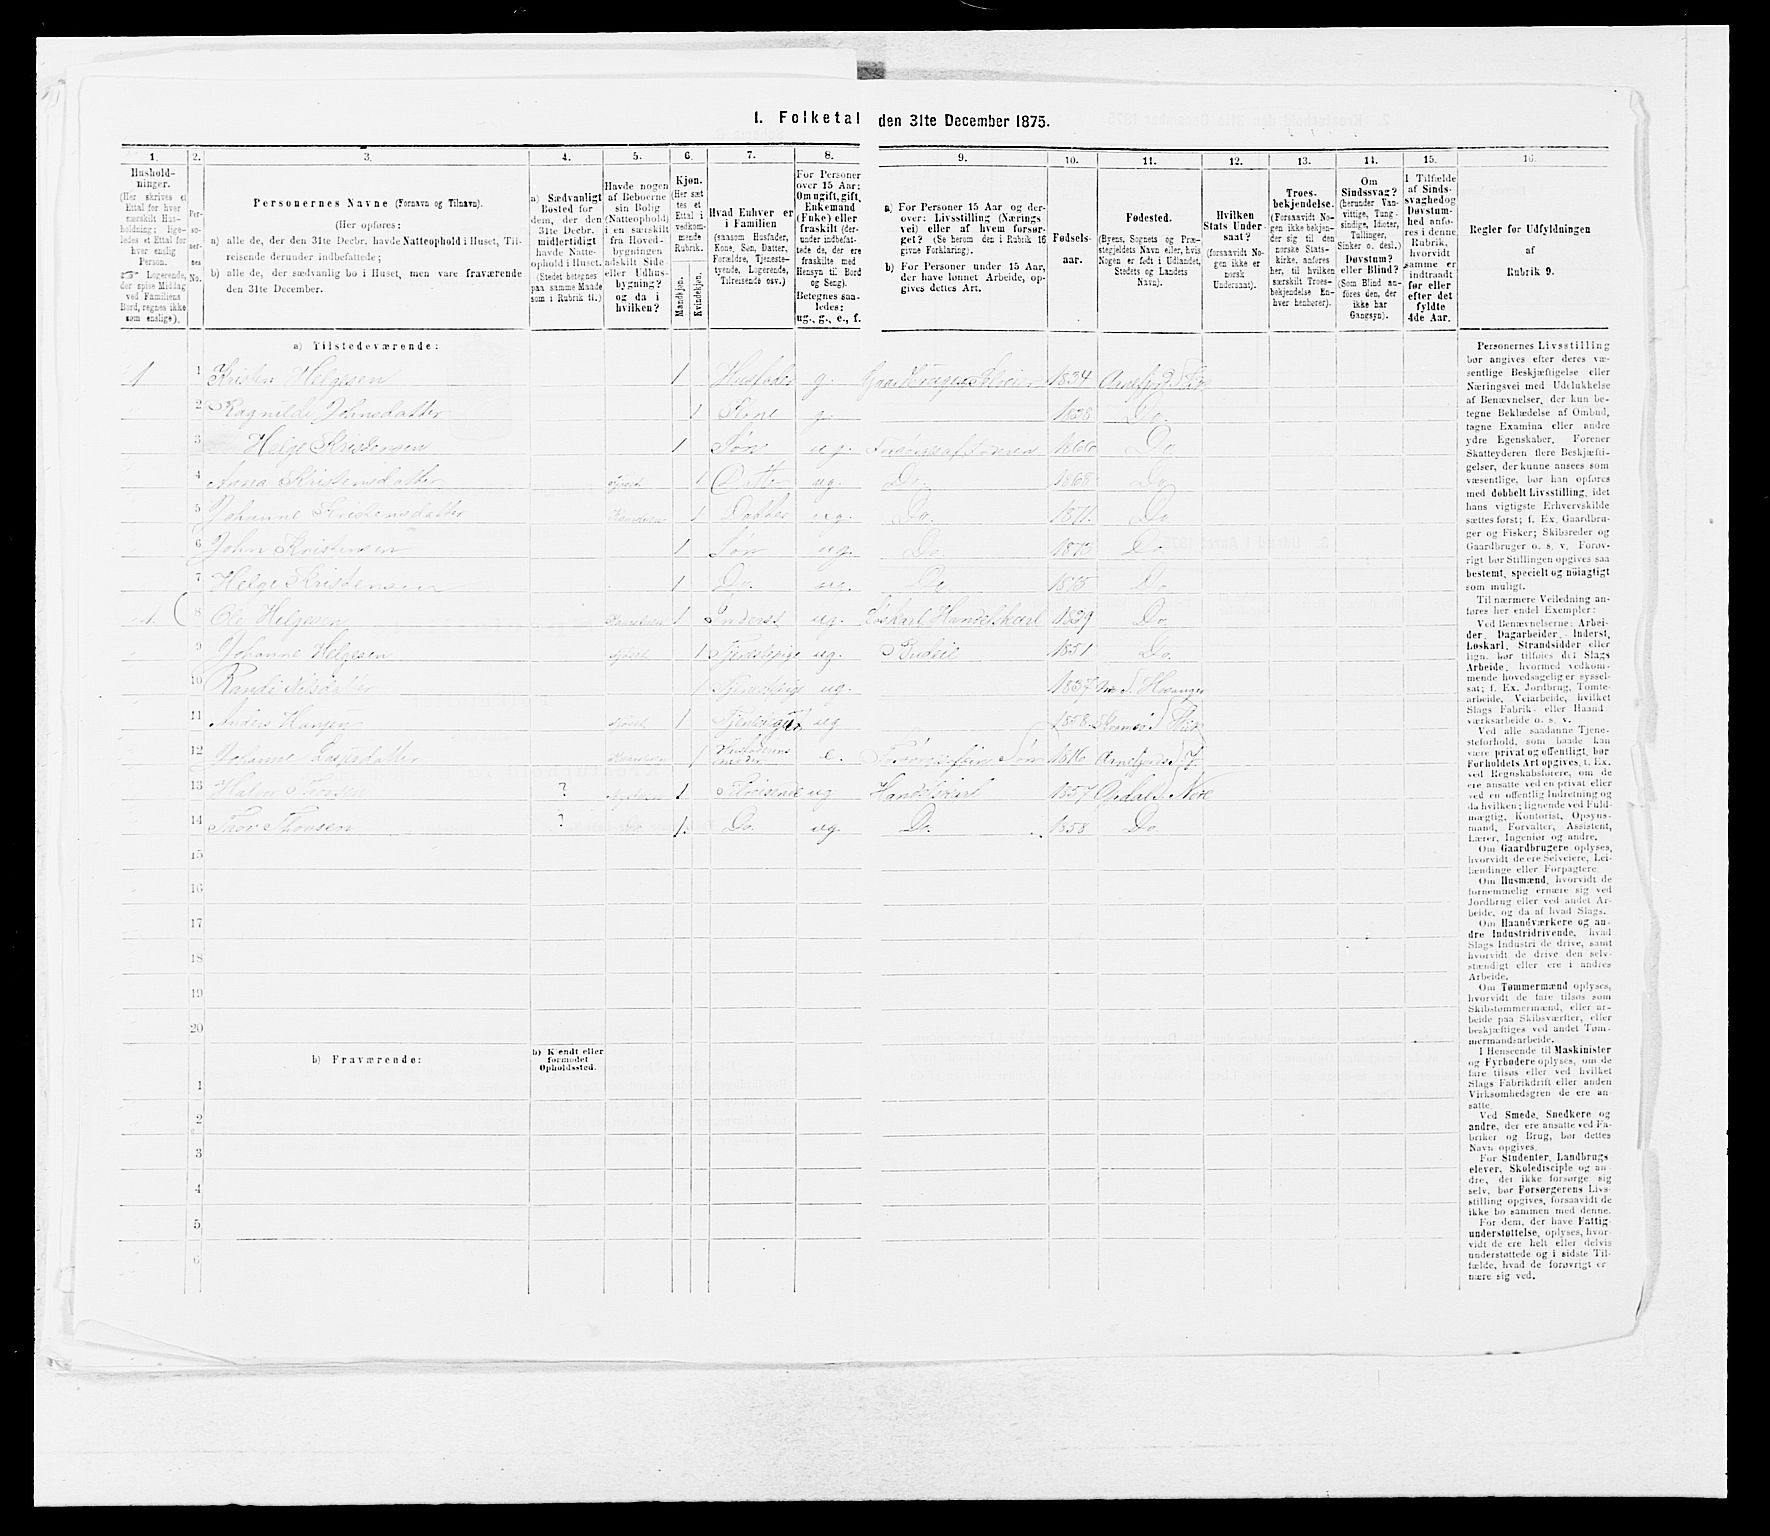 1. Folketal den 31te December 1875.
1. 2. 3. 4. 5. 6. 7. 8. 9. 10. 11. 12. 13. 14. 15. 16.
Hushold-
ninger.
(Her skrives et
Ettal for hver
særskilt Hus-
holdning; lige-
ledes et Ettal for
hver enslig
Person.
Logerende,
der spise Middag
ved Familiens
Bord, regnes ikke
som enslige).
Per-
so-
ner-
nes
No.
Personernes Navne (Fornavn og Tilnavn).
(Her opføres:
a) alle de, der den 31te Decbr. havde Natteophold i Huset, Til-
reisende derunder indbefattede;
b) alle de, der sædvanlig bo i Huset, men vare fraværende
den 31te December.
a) Sædvanligt
Bosted for
dem, der den
31te Decbr.
midlertidigt
havde Natte-
ophold i Huset.
(Stedet betegnes
paa samme Maade
som i Rubrik 11.)
Havde nogen
af Beboerne
sin Bolig
(Natteophold)
i en særskilt
fra Hoved-
bygningen
adskilt Side-
eller Udhus-
bygning?
og da i
hvilken?
Kjøn.
(Her sæt-
tes et
Ettal i
vedkom-
mende
Rubrik.
Mandkjøn.
Kvindekjøn.
Hvad Enhver er
i Familien
(saasom Husfader,
Kone, Søn, Datter,
Forældre, Tjeneste-
tyende, Logerende,
Tilreisende osv.)
For Personer
over 15 Aar:
Om ugift, gift,
Enkemand
(Enke) eller
fraskilt (der-
under indbefat-
tede de, der ere
fraskilte med
Hensyn til Bord
og Seng).
Betegnes saa-
ledes:
ug., g., e., f.
a) For Personer 15 Aar og der-
over: Livsstilling (Nærings
vei) eller af hvem forsør-
get? (Se herom den i Rubrik 16
givne Forklaring).
b) For Personer under 15 Aar,
der have lønnet Arbeide, op-
gives dettes Art.
Fødsels-
aar.
Fødested.
(Byens, Sognets og Præ-
stegjeldets Navn eller, hvis
Nogen er født i Udlandet,
Stedets og Landets
Navn).
Hvilken
Stats Under-
saat?
(forsaavidt No-
gen ikke er
norsk
Undersaat).
Troes-
bekjendelse.
(Forsaavidt No-
gen ikke bekjen-
der sig til den
norske Stats-
kirke, anføres
her, til hvilken
særskilt Troes-
bekjendelse En-
hver henhører).
Om
Sindssvag?
(herunder Van-
vittige, Tung-
sindige, Idioter,
Tullinger,
Sinker o. desl.)
Døvstum?
eller Blind?
(Som Blind an-
føres den, der
ikke har
Gangsyn).
I Tilfælde
af Sinds-
svaghed og
Døvstum-
hed anfø-
res i denne
Rubrik,
hvorvidt
samme er
indtraadt
før eller
efter det
fyldte
4de Aar.
Regler for Udfyldningen
af
Rubrik 9.
a) Tilstedeværende:
1 1 Kristen Helgesen 1 Husfader g. Gaardbruger Selveier 1834
2 Ragnilde Johnsdatter 1 Kone g. Do.
3 Helge Kristensen 1 Søn ug. 1866 Do
4 Anna Kristensdatter 1 Datter ug. Do. 1868 Do
5 Johanne Kristensdatter 1 Datter ug. Do. 1871 Do
6 John Kristensen 1 Søn ug. Do. Do
7 Helge Kristensen 1 Do. ug. Do 1875 Do
1 8 Ole Helgesen 1 Inderst ug. Løskarl Handelskarl 1829 Do.
9 Johanne Helgesen 1 Tjenestepige ug. Budeie 1851 Do.
10 Randi Nilsdatter 1 Tjenestepige ug. 1837
11 Anders Hansen 1 ug 1858
12 Johanne 1 Husfaderens moder e. 1816
13 Halvor Thorsen ? 1 Tilreisende ug Handelskarl 1857 Opdal Nore
14 Thor Thorsen ? Do. 1. Do. ug. Do. 1858 Do.
15
16
17
18
19
20
b) Fraværende:
b) Kjendt eller
formodet
Opholdssted.
1
2
3
4
5
6
Personernes Livsstilling
bør angives efter deres væ-
sentlige Beskjæftigelse eller
Næringsvei med Udelukkelse
af Benævnelser, der kun be-
tegne Beklædelse af Ombud,
tagne Examina eller andre
ydre Egenskaber. Forener
Skatteyderen flere Beskjæfti-
gelser, der kunne ansees som
væsentlige, bør han opføres
med dobbelt Livsstilling, idet
hans vigtigste Erhvervskilde
sættes først; f. Ex. Gaardbru-
ger og Fisker; Skibsreder og
Gaardbruger o. s. v. Forøv-
rigt bør Stillingen opgives saa
bestemt, specielt og nöiagtigt
som muligt.
Til nærmere Veiledning an-
føres her endel Exempler:
Ved Benævnelserne: Arbei-
der, Dagarbeider, Inderst,
Løskarl, Strandsidder eller
lign. bør tilføies det Slags
Arbeide, hvormed vedkom-
mende hovedsagelig er syssel-
sat; f. Ex. Jordbrug, Tomte-
arbeide, Veiarbeide, hvilket
Slags Fabrik- eller Haand-
værksarbeide o. s. v.
Ved alle saadanne Tjene-
steforhold, som baade kan
være privat og offentligt, bør
Forholdets Art opgives, t. Ex.
ved Regnskabsførere, om de
ere ansatte ved en privat eller
ved en offentlig Indretning og
da hvilken; lignende ved Fuld-
mægtig, Kontorist, Opsyns-
mand, Forvalter, Assistent,
Lærer, Ingeniør og andre.
Om Gaardbrugere oplyses,
hvorvidt de ere Selveiere, Lei-
lændinge eller Forpagtere.
Om Husmænd, hvorvidt de
fornemmelig ernære sig ved
Jordbrug eller ved andet Ar-
beide, og da af hvad Slags.
Om Haandværkere og an-
dre Industridrivende, hvad
Slags Industri de drive, samt
hvorvidt de drive den selv-
stændigt eller ere i andres
Arbeide.
Om Tømmermænd oplyses,
hvorvidt de fare tilsøs som
Skibstømmermænd, eller ar-
beide paa Skibsværfter, eller
beskjæftiges ved andet Tøm-
mermandsarbeide.
I Henseende til Maskinister
og Fyrbødere oplyses, om de
fare tilsøs eller ved hvilket
Slags Fabrikdrift eller anden
Virksomhedsgren de ere an-
satte.
Ved Smede, Snedkere og
andre, der ere ansatte ved Fa-
briker og Brug, bør dettes
Navn opgives.
For Studenter, Landbrugs-
elever, Skoledisciple og an-
dre, der ikke forsørge sig
selv, bør Forsørgerens Livs-
stilling opgives, forsaavidt de
ikke bo sammen med denne.
For dem, der have Fattig-
understøttelse, oplyses, hvor-
vidt de ere helt eller delvis
understøttede og i sidste Til-
fælde, hvad de forøvrigt er-
nære sig ved.